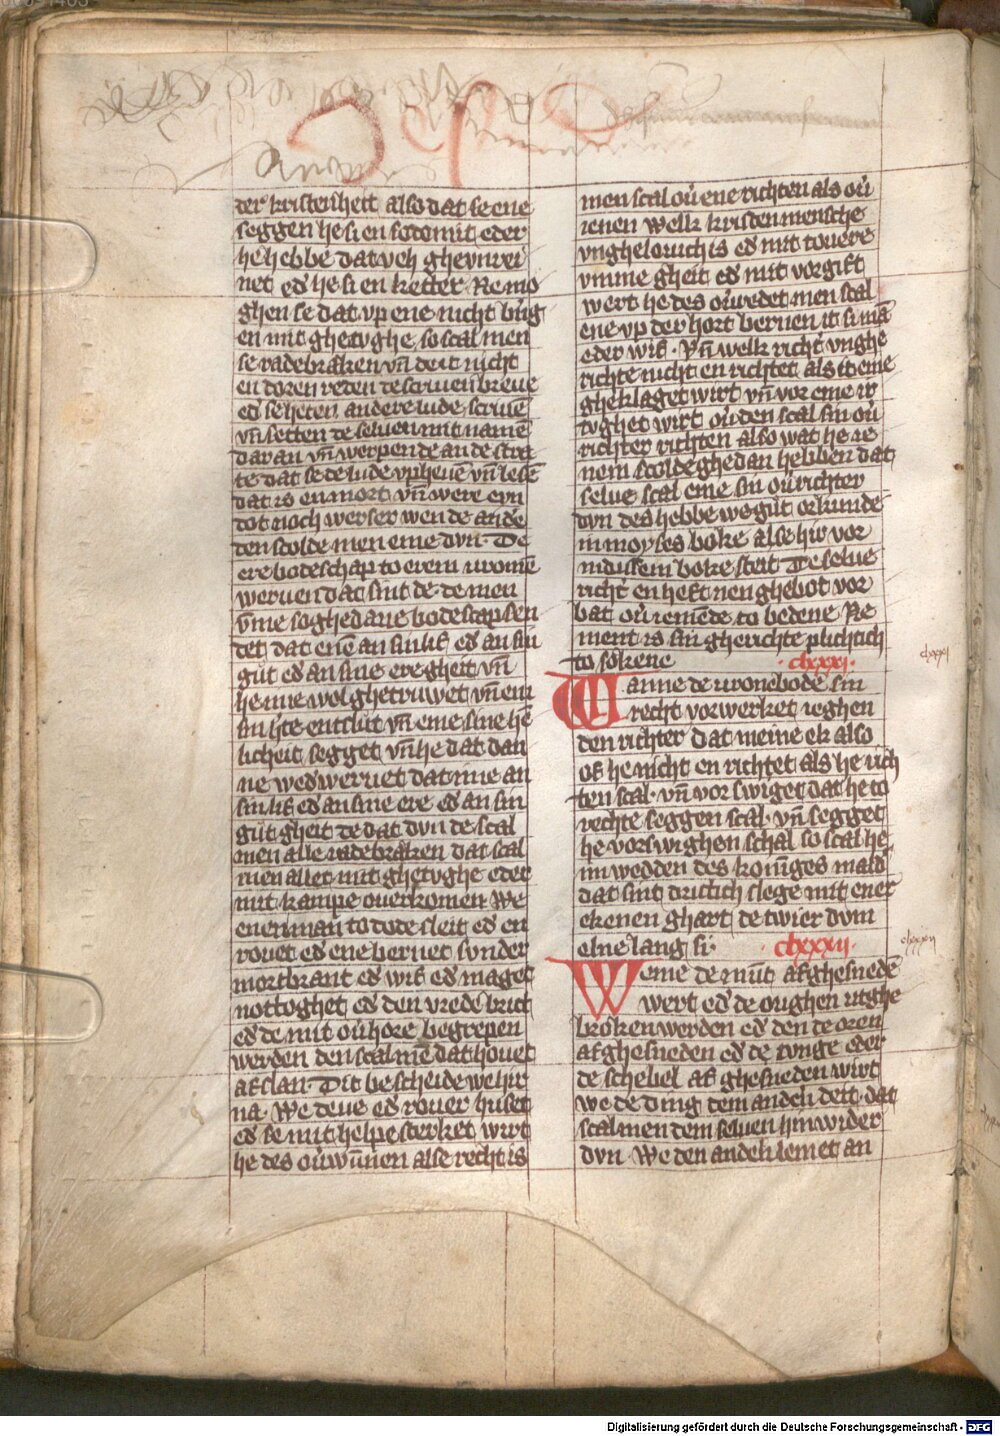 der kristenheit also dat se ene
seggen he si en sodomit eder
he hebbe dat veh ghevnrei
net ed' he si en ketter. Ne mo
ghen se dat vp ene nicht brīg
en mit ghetvghe so scal men
se radebraken vn̄ deit nicht
en doren reden de scriuen breue
ed' se heten andere lude scriuē
vn̄ setten de seluen mit namē
dar an vn̄ werpen de an de stra
te dat se de lude vpheuē vn̄ lesē
dat is en mort vn̄ were eyn
dot noch werser wen de ande
den scolde men eme dvn. De
ere bodeschap to eren vromē
weruen dat sint de. de men
v̄me soghedane bodescap sen
det dat enē an sin lif ed' an sin
gůt ed' an sine ere gheit vn̄
he une wol ghetruwet vn̄ em
sin hte entslůt vn̄ eme sine hē
licheit segget vn̄ he dat dan
ne wed'weruet dat ime an
sin lif ed' an sine ere ed' an sin
gůt gheit de dat dvn de scal
men alle radebraken dat scal
men allet mit ghetvghe eder
mit kampe ouerkomen We
enen man to dode sleit ed' en
rouet ed' ene bernet sunder
mortbrant ed' wif ed' maget
nottoghet ed' den vrede brict
ed' de mit ou'hore begrepen
werden den scal mē dat houet
af slan. Dit bescheide we hir
na. We deue ed' rouer huset
ed' se mit helpe sterket wirt
he des ou'wūnen alse recht is
men scal ou' ene richten als ou'
ienen Welk kristen mensche
vnghelouich is ed' mit touere
vmme gheit ed' mit vorgift
wert he des ou'redet men scal
ene vp der hort bernen it si mā
eder wif. Vn̄ welk richt' vnghe
richte nicht en richtet als it eme
gheklaget wirt vn̄ vor eme ir
tvghet wirt ou' den scal sin ou'
richter richten also wat he ie
nem scolde ghedan hebben dat
selue scal eme sin ou'richter
dvn des hebbe we gůt orkunde
in moyses boke alse hir vor
in dussem boke steit De selue
richt' en heft nen ghebot vor
bat ou' iemēde to bedene Ne
ment is sin gherichte plichtich
to sokene clxxxi.
clxxxi
Wanne de vronebode sin
recht vorwerket ieghen
den richter dat meine ek also
of he nicht en richtet als he rich
ten scal. vn̄ vorswiget dat he to
rechte seggen scal. vn̄ segget
he vorswighen schal so scal he
im wedden des konīges mald'
dat sint drittich slege mit ener
ekenen ghart de twier dvm
elne lang si. clxxxii.
clxxxii
Weme de mūt afghesnedē
wert ed' de oughen utghe
broken werden ed' den de oren
afghesneden ed' de tonge eder
de schebel af ghesneden wirt
we de ding dem anderen deit. dat
scal men dem seluen hinwider
dvn. We den anderen lemet an
Digitalisierung gefördert durch die Deutsche Forschungsgemeinschaft - DFG